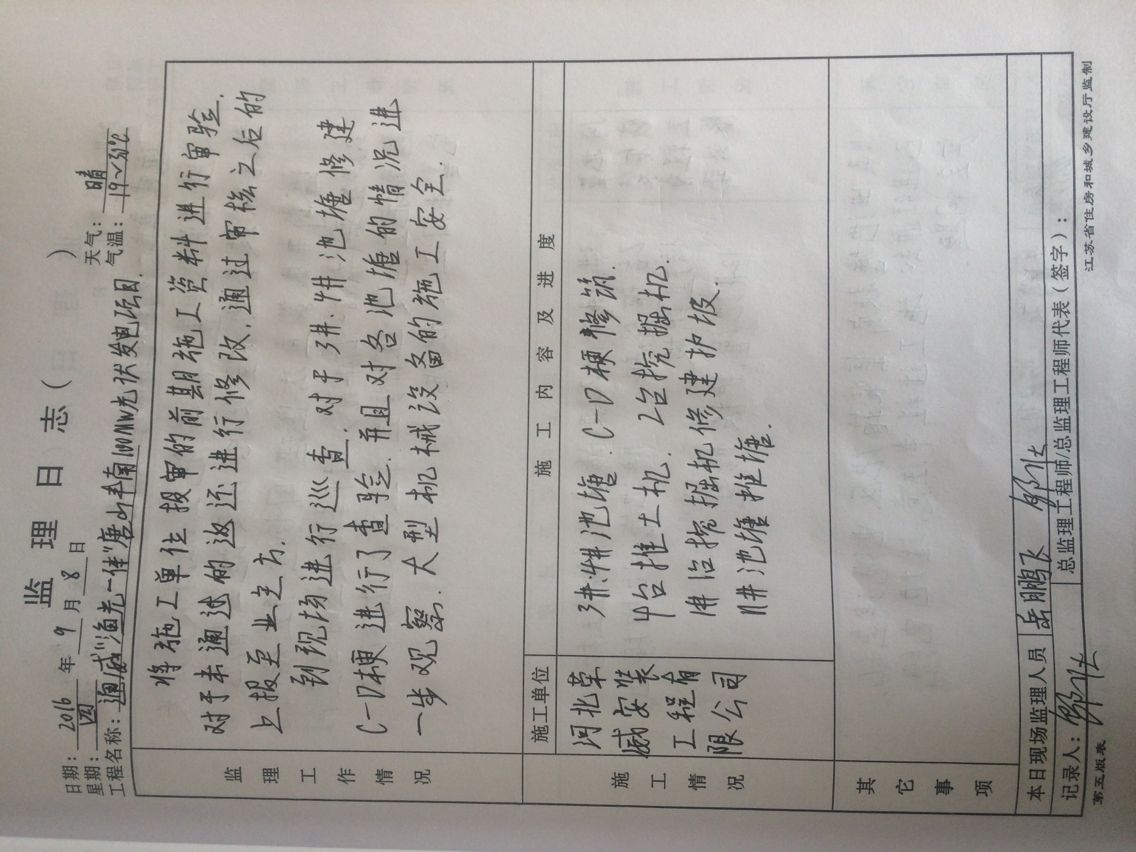 监理日志（ ）
日期：2016年9月8日 天气：晴
星期：四 气温：19~31℃
工程名称：通威"渔光一体"唐山丰南100MW光伏发电项目.
监理工作情况
将施工单位报审的前期施工资料进行审验.
对于未通过的返还进行修改,通过审核之后的
上报至业主方.
到现场进行巡查.对于3#.4#池塘修建
C-D埂进行了查验.并且对各池塘的情况进
一步观察.大型机械设备的施工安全.
施工情况
施工单位 施工内容及进度
河北荣
威安装
工程有
限公司
3#.4#池塘.C-D埂修筑.
4台推土机.2台挖掘机.
1#沿挖掘机修建护坡.
11#池塘推塘.
其它事项
本日现场监理人员 岳鹏飞
记录人： 总监理工程师/总监理工程师代表（签字）：
第五版表 江苏省住房和城乡建设厅监制